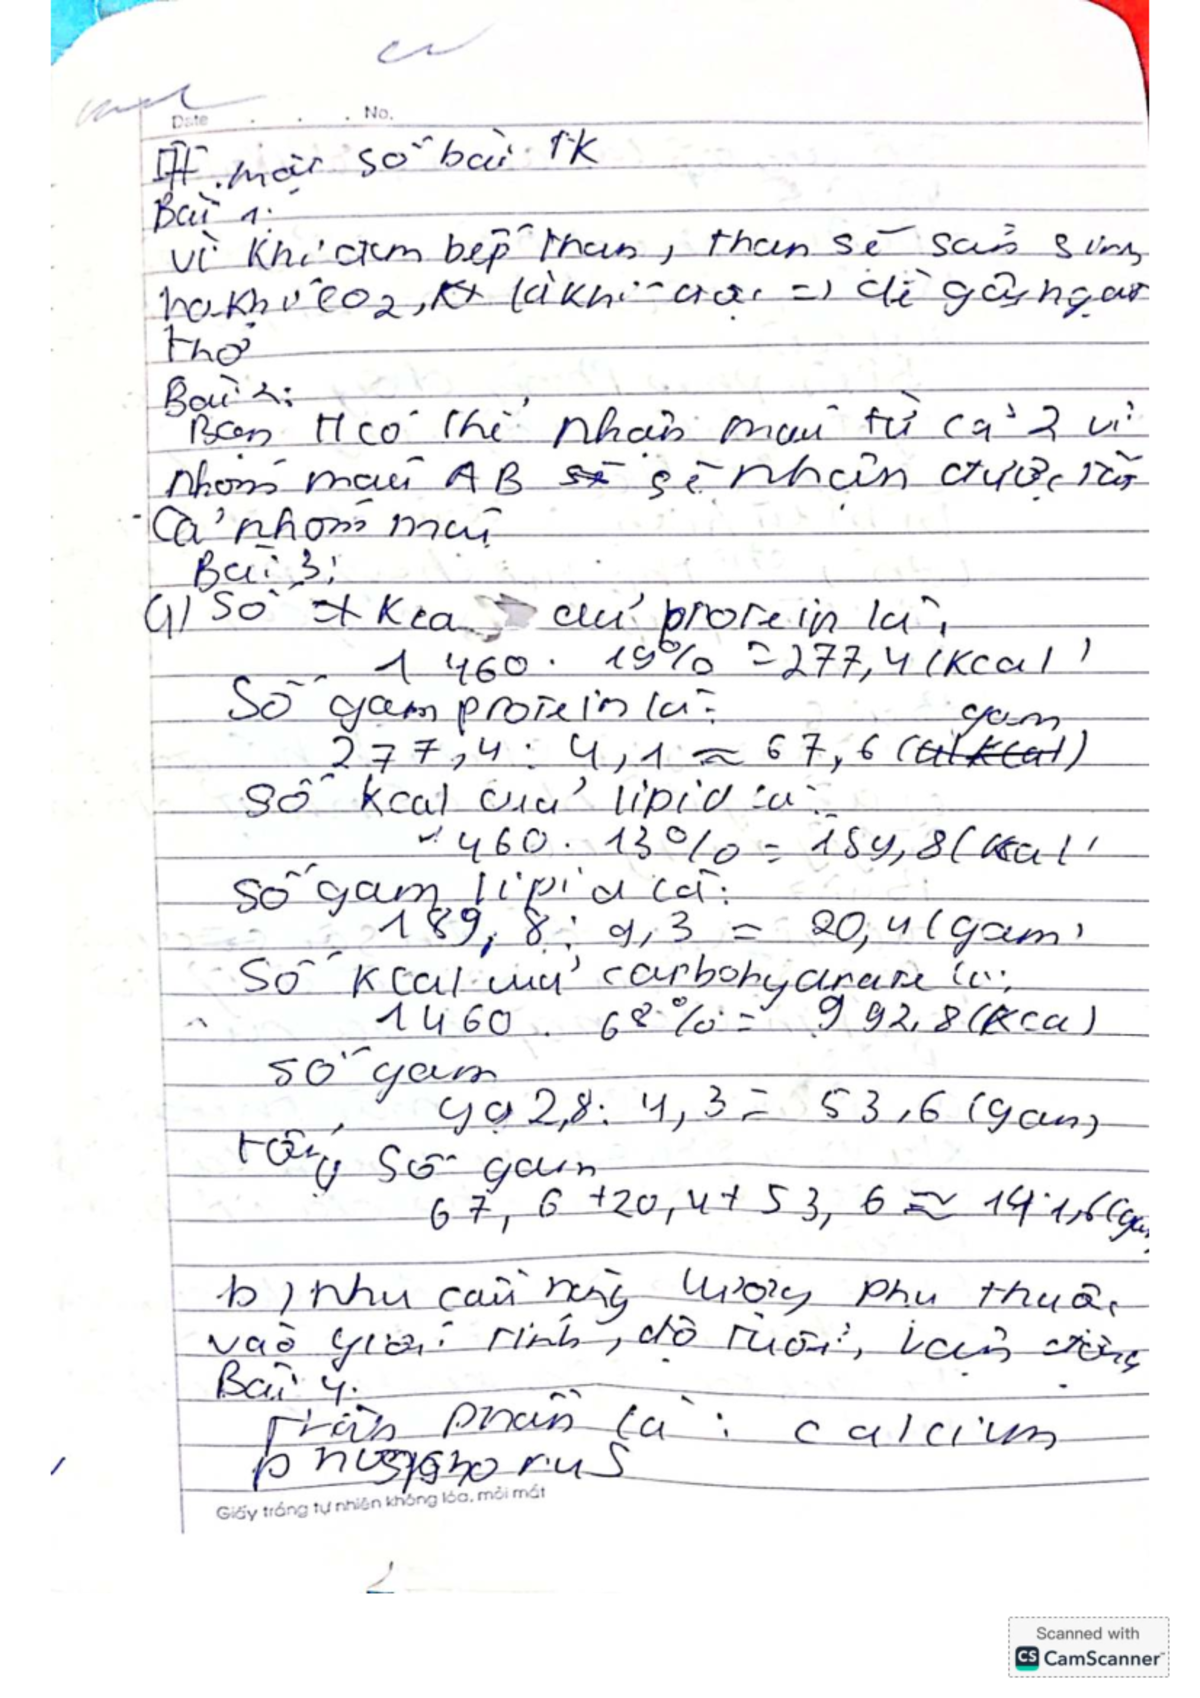 Date . . . No.
II. một số bài TK
Bài 1:
vì khi đum bếp than, than sẽ sản sinh
ra khí CO2, là khí độc => dễ gây ngạt
thở
Bài 2:
Bạn H có thể nhận máu từ cả 2 vì
nhóm máu AB sẽ nhận được từ
cả nhóm máu
Bài 3:
a) Số Kca của protein là,
1 460 . 19% = 277,4 (Kcal)
Số gam protein là:
277,4 : 4,1 ≈ 67,6 (gam)
Số kcal của lipid là:
1460 . 13% = 189,8 (Kcal)
số gam lipid là:
189,8 : 9,3 = 20,4 (gam)
Số Kcal của carbohydrate là:
1460 . 68% = 992,8 (Kca)
số gam
992,8 : 4,3 = 53,6 (gam)
tổng số gam
67,6 + 20,4 + 53,6 ≈ 141,6 (ga
b) nhu cầu năng lượng phụ thuộc
vào giới tính, độ tuổi, vận động
Bài 4.
thành phần là : calcium
phosphorus
Giấy trắng tự nhiên không lóa, mỏi mắt
Scanned with
CS CamScanner